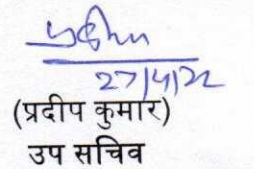 27/4/22
(प्रदीप कुमार)
उप सचिव